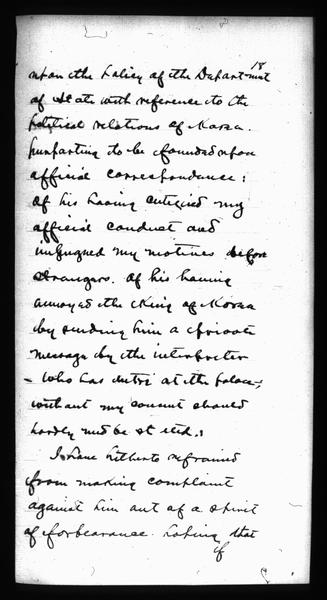 18
upon the policy of the Department
of State with reference to the
political relations of Korea.
purporting to be founded upon
official correspondence;
of his having criticised my
official conduct and
impugned my motives before
strangers. Of his having
annoyed the King of Korea
by sending him a private
message by the interpreter
- who has entré at the palace,
without my consent should
hardly need be stated.
I have hitherto refrained
from making complaint
against him out of a spirit
of forbearance. hoping that
of